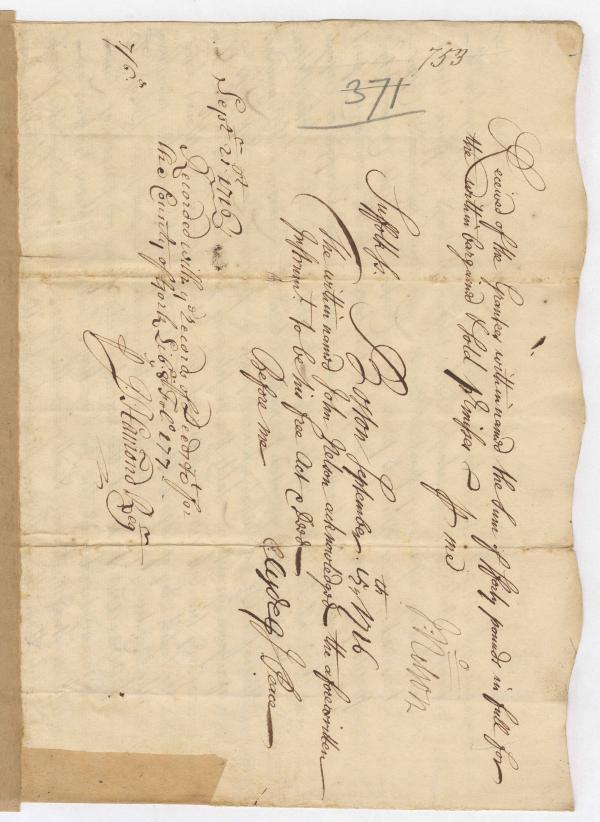 753
371
Received of the Grantees within named the sum of fforty pounds in full for
the within bargained & sold p'mises
P me
Jno Nelson
Suffolk ss. Boston September 15th 1716
The within named John Nelson acknowledged the aforewritten
Instrumt. to be his free Act & Deed
Before me
J Peace
Septr 21st 1716
Recorded with ye Records of Deeds &c for
The County of York Lib 8 Folo 177
P J. Hamond Regr
7/6d